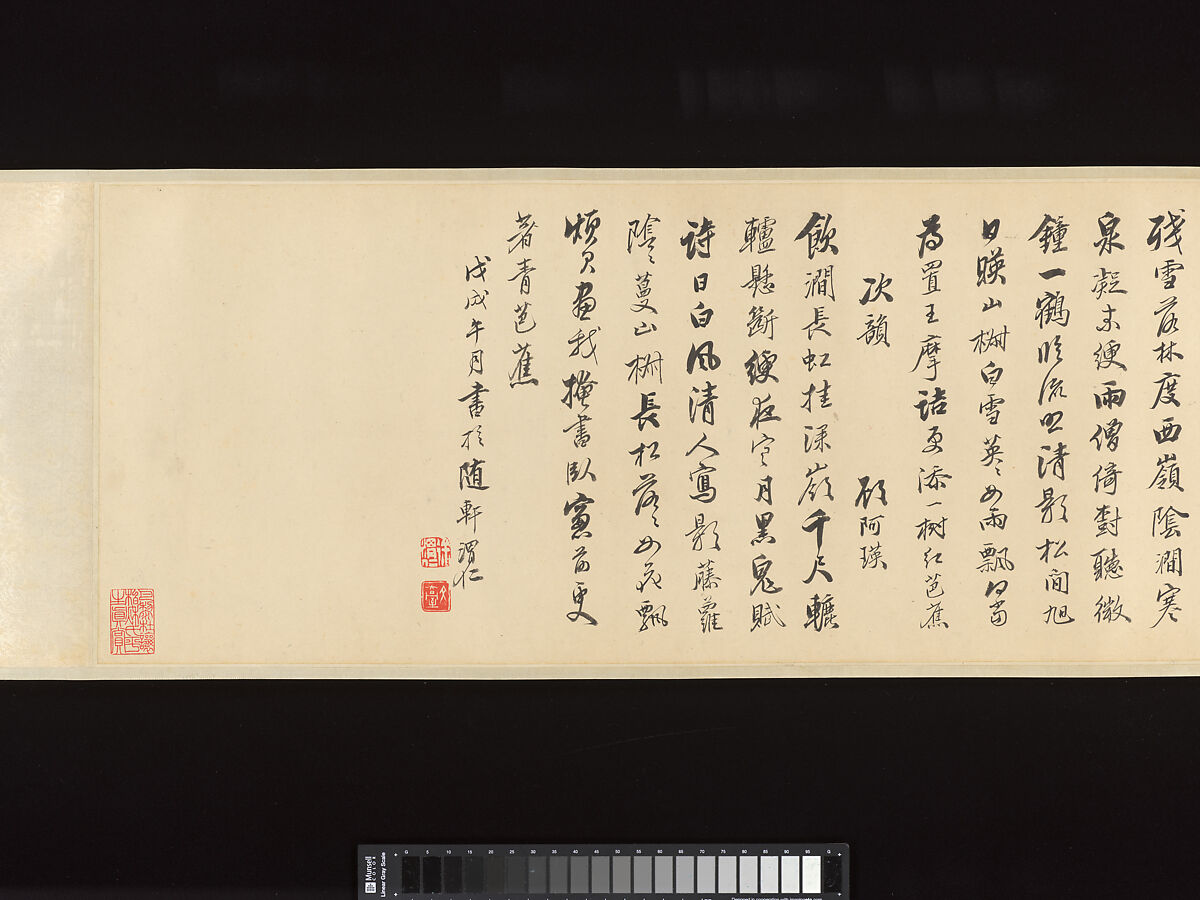 残雪落林度西嶺陰澗寒
泉凝未綆雨僧倚樹聽微
鐘一鶴臨流照清影松間旭
日暎山樹白雪英〻如雨飄何當
為置王摩詰更添一樹紅芭蕉
次韻 顾阿瑛
飲澗長虹挂深嶺千尺轆
轤懸斷綆夜寒月黑鬼賦
詩日白風清人寫影藤蘿
陰〻蔓山樹長松落〻如花飄
煩君畫我掩書臥窻前更
著青芭蕉
戊戌午月書於随軒渭仁
Munsell
COLOR
Linear Gray Scale
G 5 10 15 20 25 30 35 40 45 50 55 60 65 70 75 80 85 90 95 G